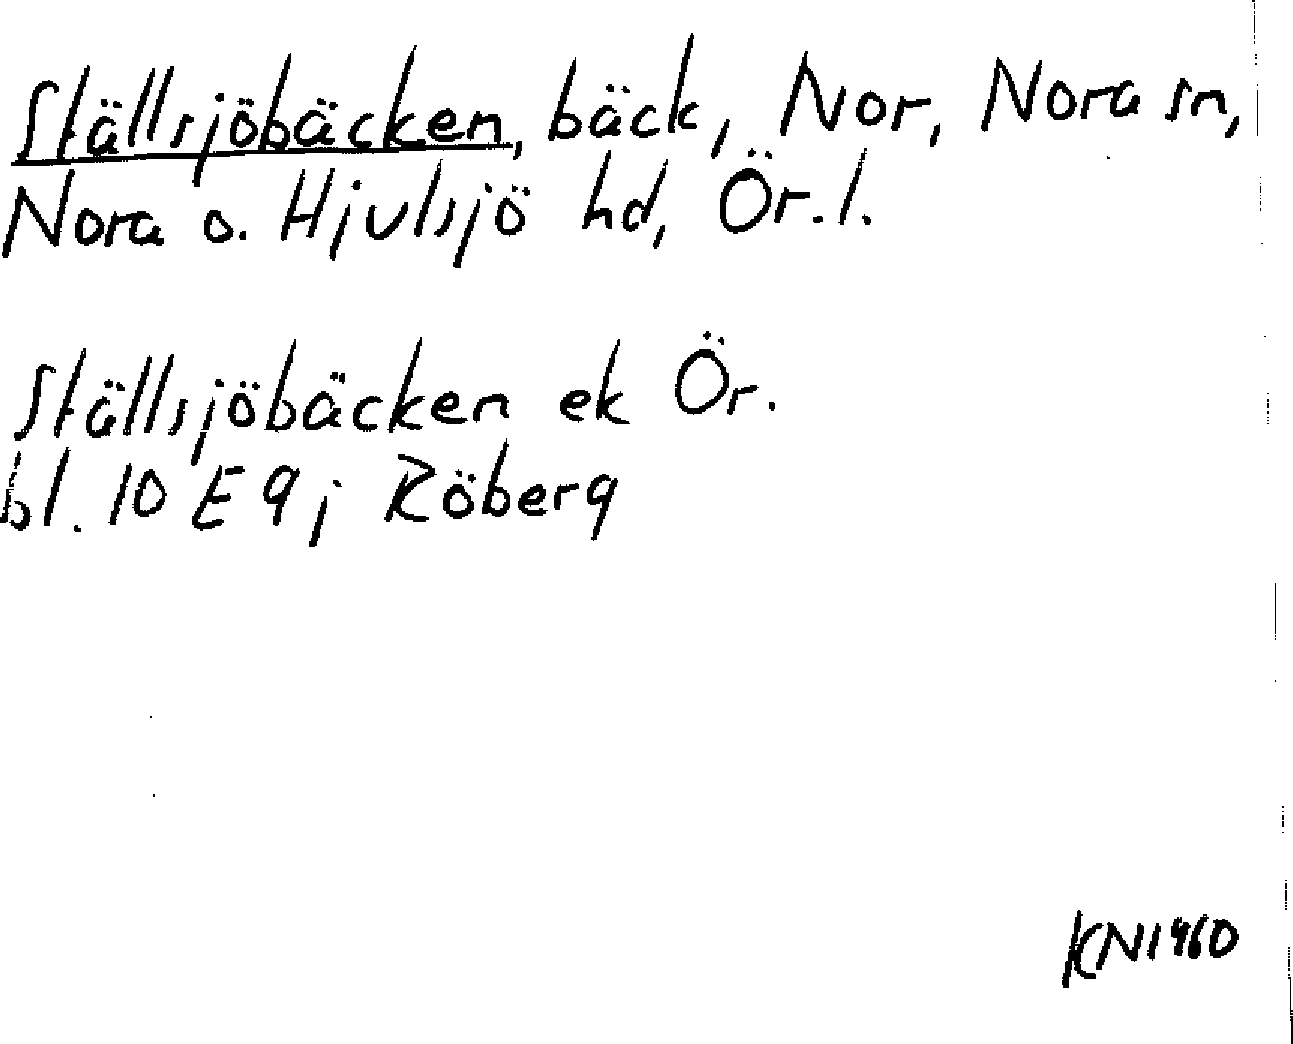 Ställsjöbäcken, bäck, Nor, Nora sn,
Nora o. Hjulsjö hd, Ör. l.
Ställsjöbäcken ek Ör.
bl. 10 E 9 j Röberg
KN1960